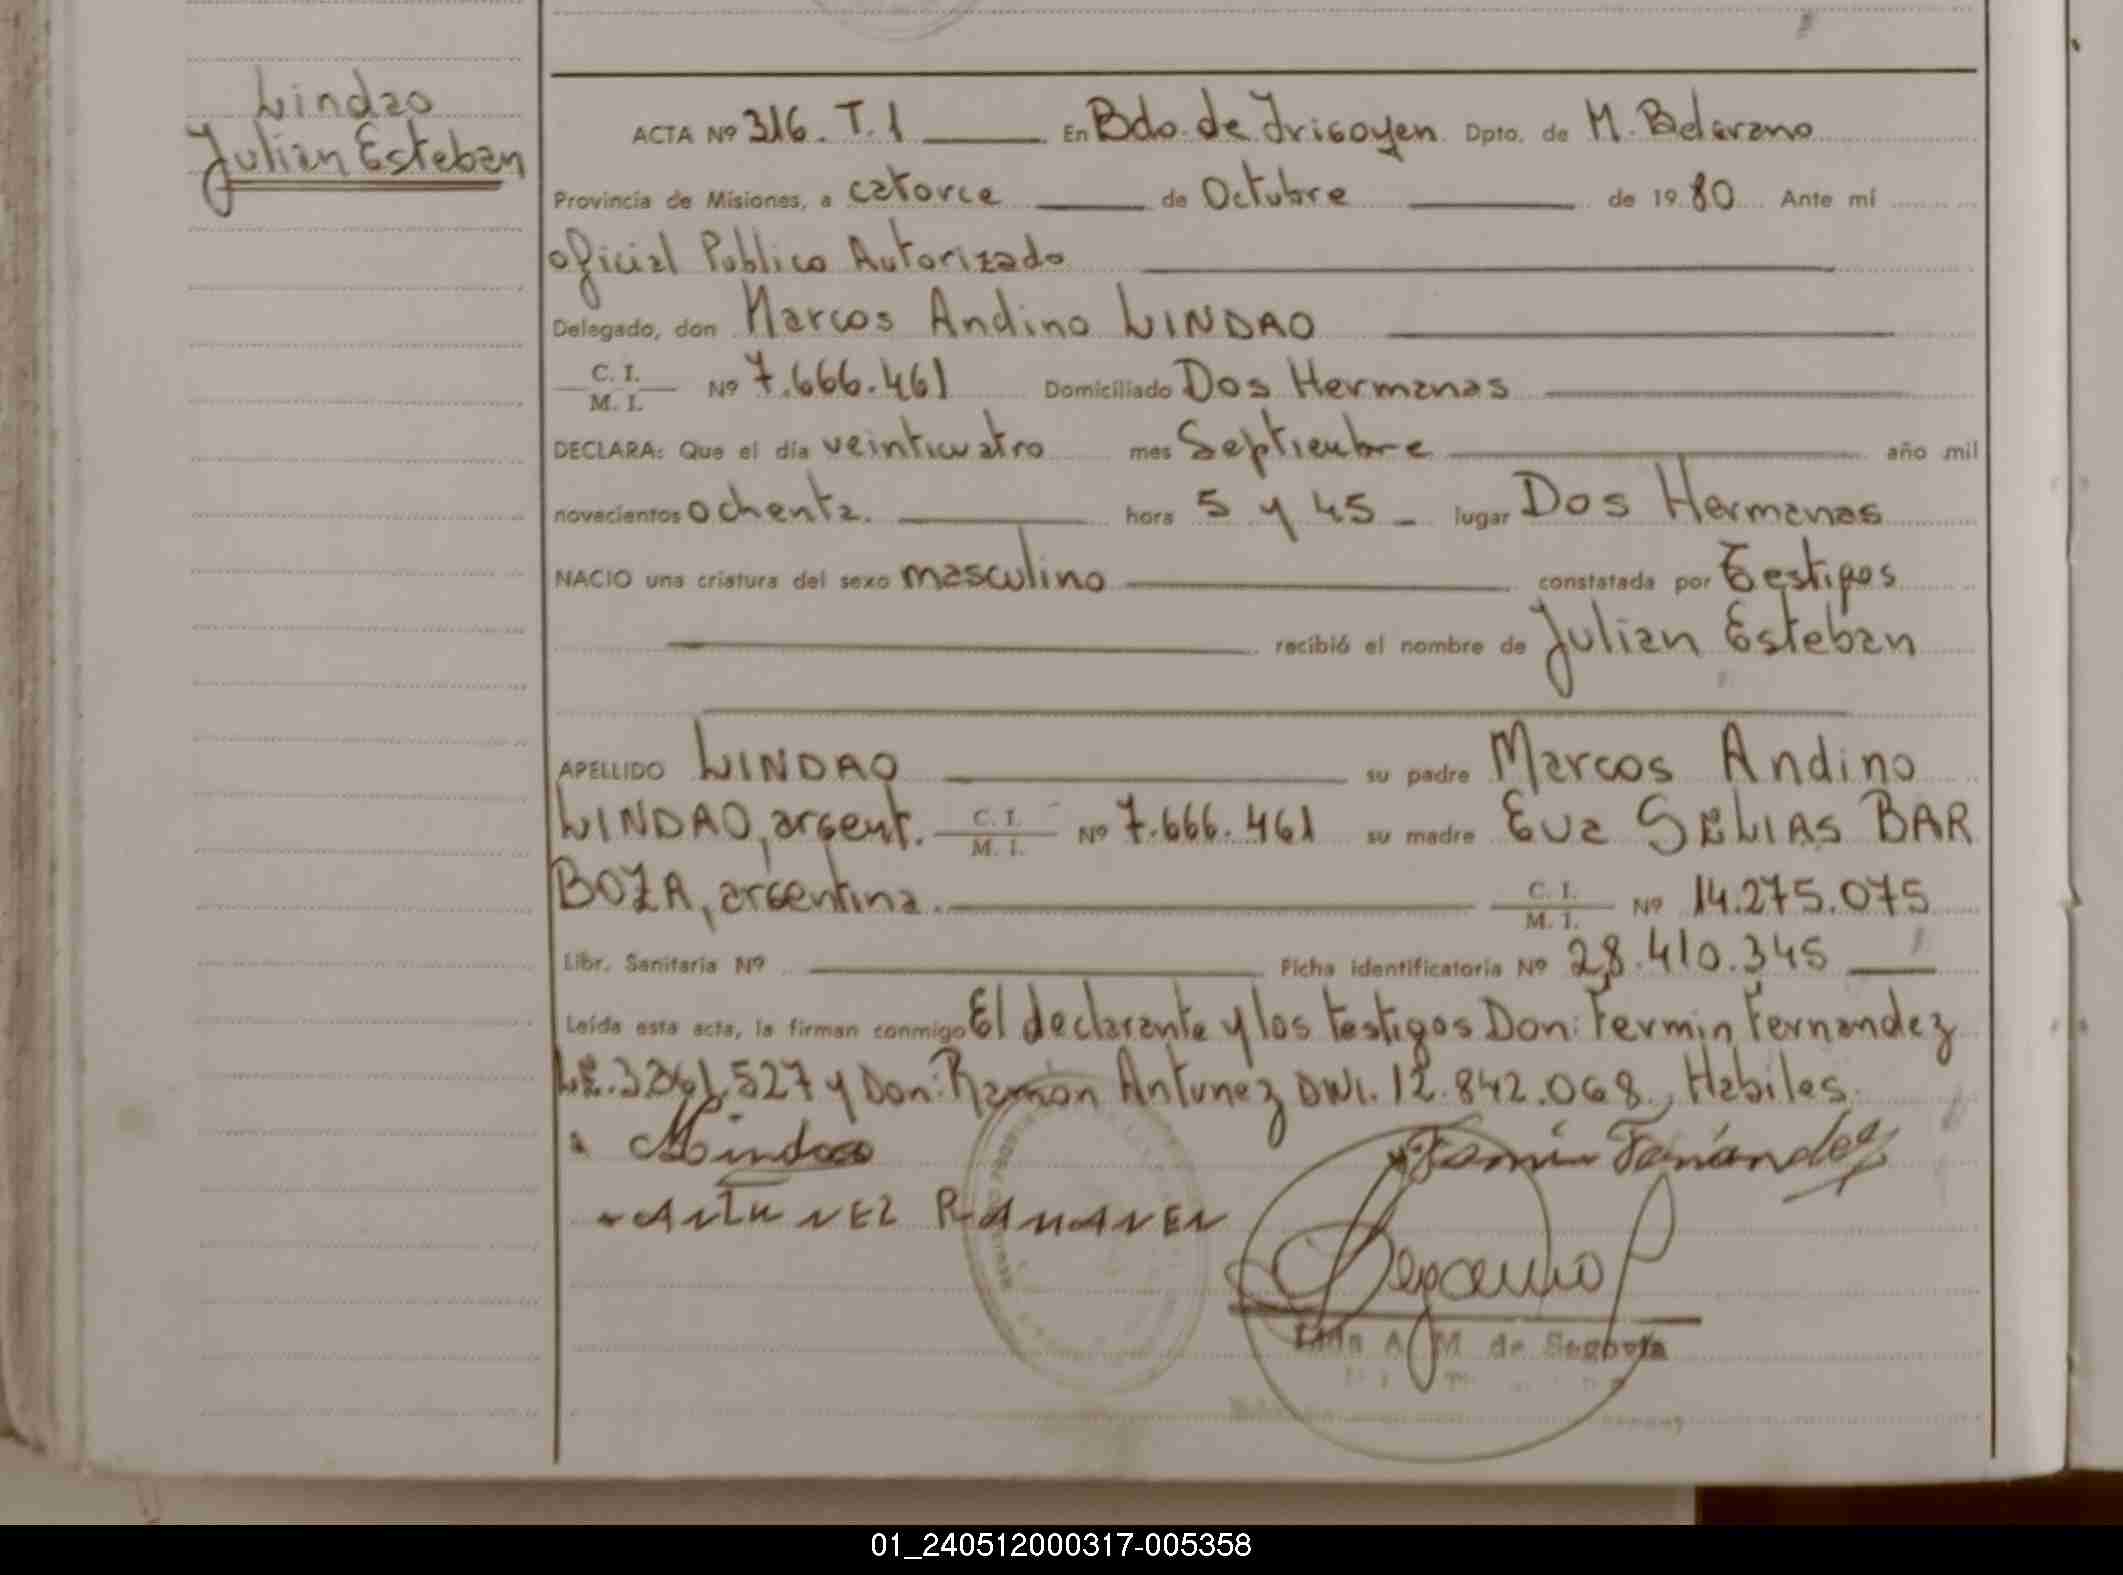 Lindao
Julian Esteban
ACTA Nº 316. T. 1 En Bdo. de Irigoyen Dpto. de M. Belgrano
Provincia de Misiones, a catorce de Octubre de 19 80 Ante mí
oficial Publico Autorizado
Delegado, don Marcos Andino LINDAO
C. I.
M. I. Nº 7.666.461 Domiciliado Dos Hermanas
DECLARA: Que el día veinticuatro mes Septiembre año mil
novecientos ochenta. hora 5 y 45 - lugar Dos Hermanas
NACIO una criatura del sexo masculino constatada por Testigos
recibió el nombre de Julian Esteban
APELLIDO LINDAO su padre Marcos Andino
LINDAO, argent. C. I. M. I. Nº 7.666.461 su madre Eva SELIAS BAR
BOZA, argentina. C. I. M. I. Nº 14.275.075
Libr. Sanitaria Nº Ficha identificatoria Nº 28.410.345
Leída esta acta, la firman conmigo El declarante y los testigos Don: Fermin Fernandez
LE. 527 y Don: Ramon Antunez DNI. 12.842.068., Habiles.
MLindao Fermin Fernández
ANTUNEZ
A M de Segovia
01_240512000317-005358